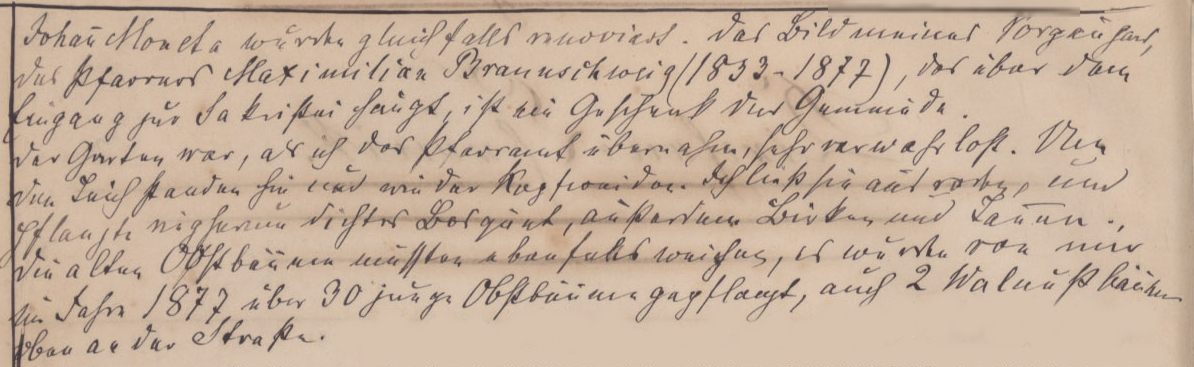 Johañ Moneta wurden gleichfalls renoviert. Das Bild meines Vorgängers,
des Pfarrers Maximilian Braunschweig (1833-1877), das über dem
Eingang zur Sakristei hängt, ist ein Geschenk der Gemeinde.
Der Garten war, als ich das Pfarramt übernahm, sehr verwahrlost. Um
den Teich standen hin und wieder Kopfweiden. Ich ließ sie ausroden, und
pflanzte ringsherum dichtes Bosquet, außerdem Birken und Tannen.
Die alten Obstbäume mussten ebenfalls weichen, es wurden von mir
im Jahre 1877 über 30 junge Obstbäume gepflanzt, auch 2 Walnußbäume
oben an der Straße.